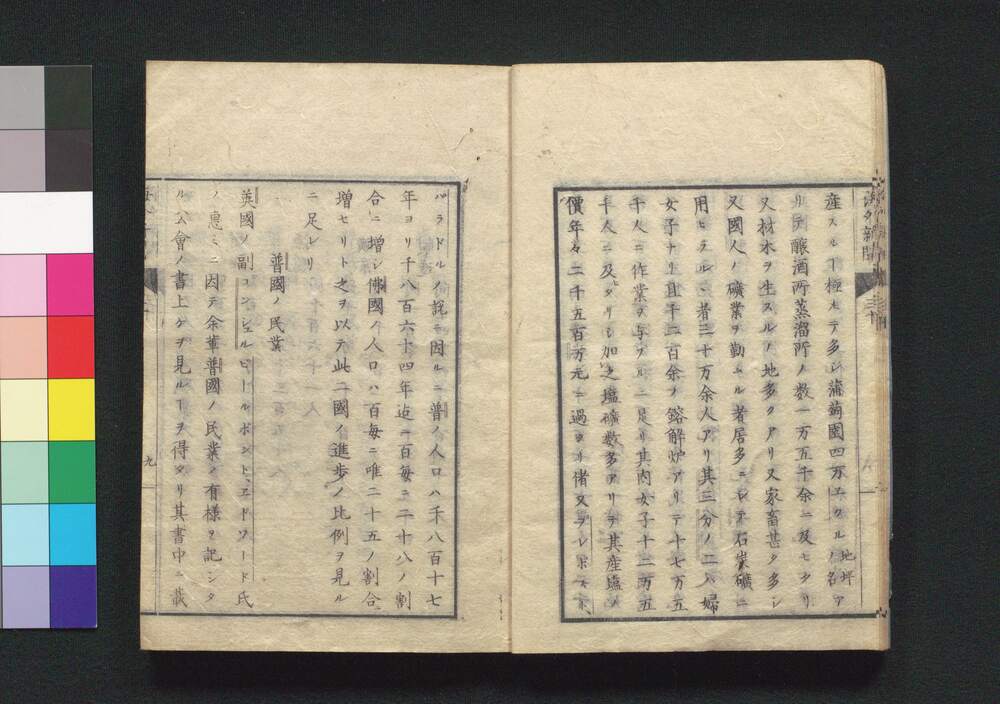 産スルヿ極メテ多シ蒲蒟園四万エクルノ地坪名ア
リテ醸酒所蒸溜所ノ数一万五千余ニ及セタリ
又材木ヲ生スルノ地多クアリ又家畜甚タ多シ
又國人ノ礦業ヲ勤ムル者居多ニシテ石炭礦ニ
用ヒラルヽ者三十万余人アリ其三分ノ二ハ婦
女子ナリ且千二百余ノ鎔解炉アリテ十七万五
千人ニ作業ヲ与フルニ足リ其内女子十二万五
千人ニ及ヒタリシ加之塩礦数多アリテ其産塩ノ
價年々二千五百万元ニ過ヨリ偖又ヲレ
海外新聞
バラドルノ説ニ因ルニ普ノ人口ハ千八百十七
年ヨリ千八百六十四年迠ニ百毎ニ二十八ノ割
合ニ増シ佛國ノ人口ハ百毎ニ唯二十五ノ割合
増セリト之ヲ以テ此二國ノ進歩ノ比例ヲ見ル
ニ足レリ
普國ノ民業
英國ノ副コンシュルビールボントエドワード氏
ノ惠ミニ因テ余輩普國ノ民業ノ有様ヲ記シタ
ル公會ノ書上ケヲ見ルヿヲ得タリ其書中ニ載
九